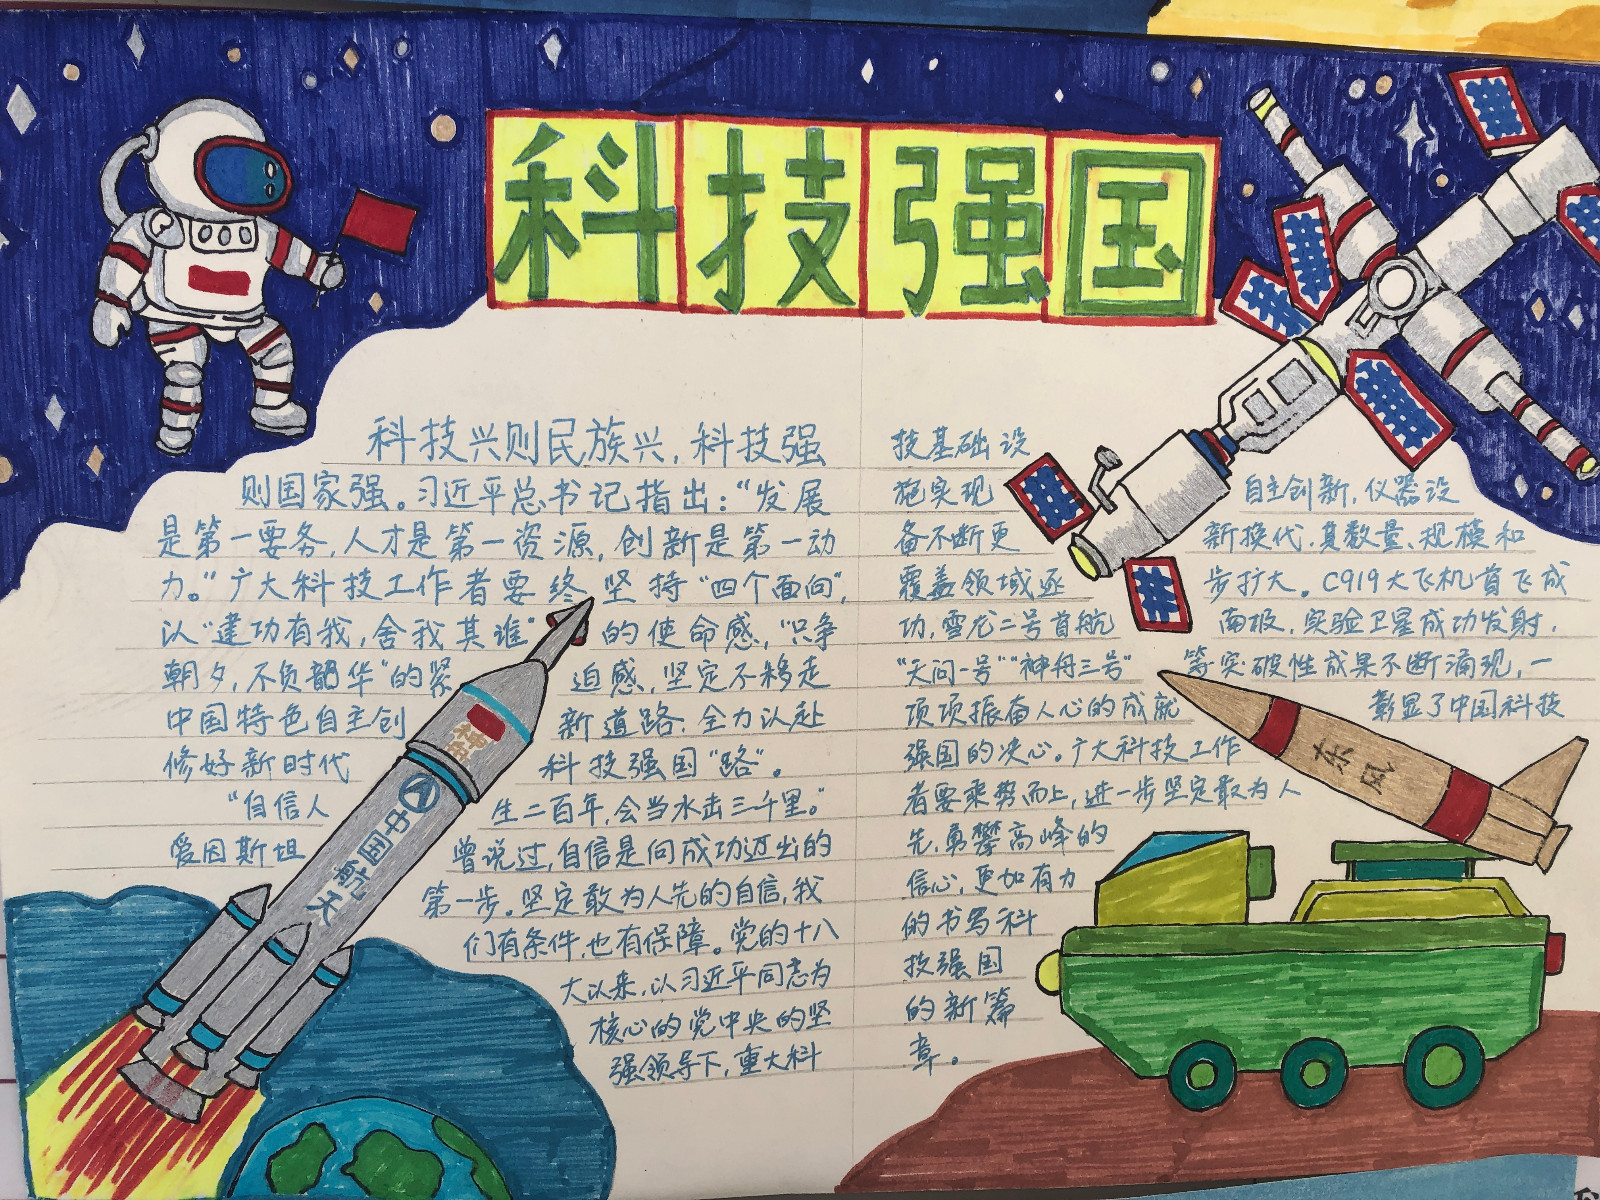 科技强国
科技兴则民族兴,科技强
则国家强。习近平总书记指出:“发展
是第一要务,人才是第一资源,创新是第一动
力。”广大科技工作者要终坚持“四个面向”,
认“建功有我,舍我其谁”的使命感,“只争
朝夕,不负韶华”的紧迫感,坚定不移走
中国特色自主创新道路.全力以赴
修好新时代科技强国“路”。
“自信人生二百年,会当水击三千里。”
爱因斯坦曾说过,自信是向成功迈出的
第一步。坚定敢为人先的自信,我
们有条件,也有保障。党的十八
大以来,以习近平同志为
核心的党中央的坚
强领导下,重大科
技基础设
施实现自主创新,仪器设
备不断更新换代.其数量、规模和
覆盖领域逐步扩大。C919大飞机首飞成
功,雪龙二号首航南极,实验卫星成功发射.
“天问一号”“神舟三号”等突破性成果不断涌现,一
项项振奋人心的成就彰显了中国科技
强国的决心。广大科技工作
者要乘势而上,进一步坚定敢为人
先.勇攀高峰的
信心,更加有力
的书写科
技强国
的新篇
章。
神舟
中国航天
东风